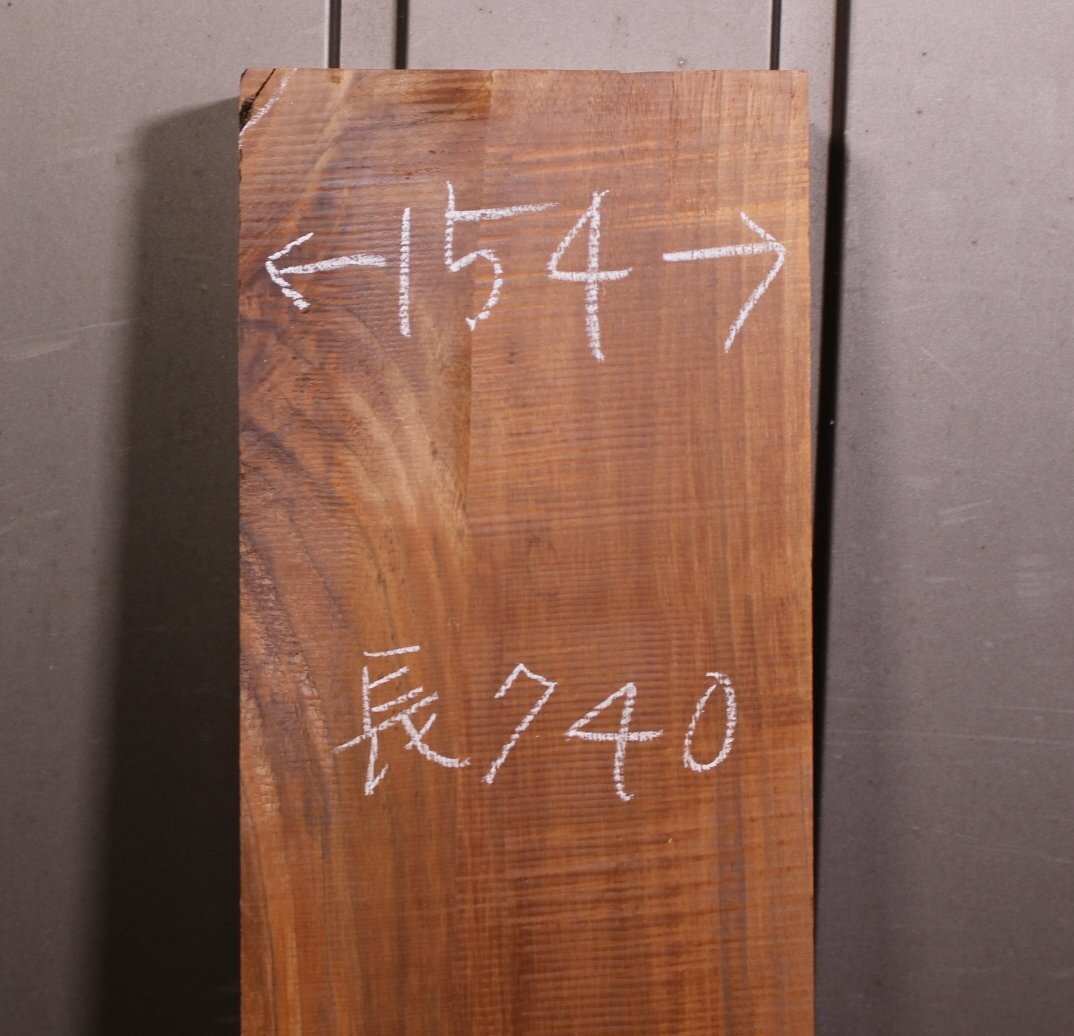 ←154→
長740